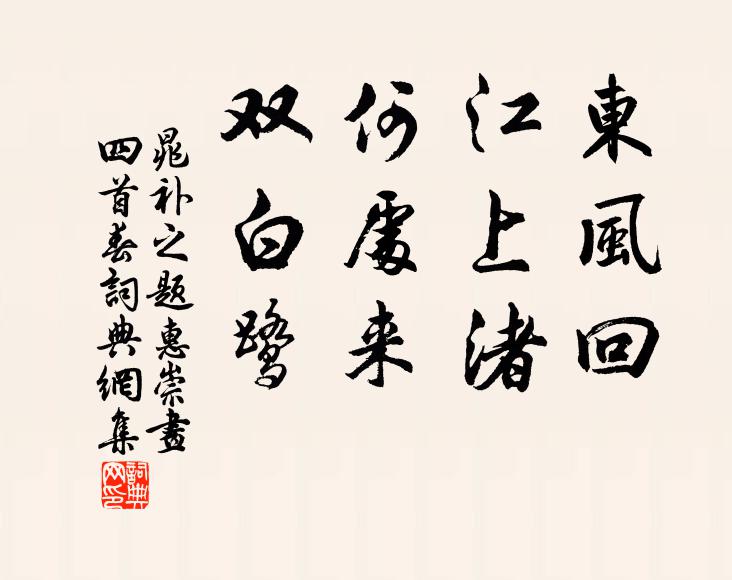 東風回
江上渚
何處来
双白鹭
晁补之题惠崇畫
四首春詞典網集
詞典
网印